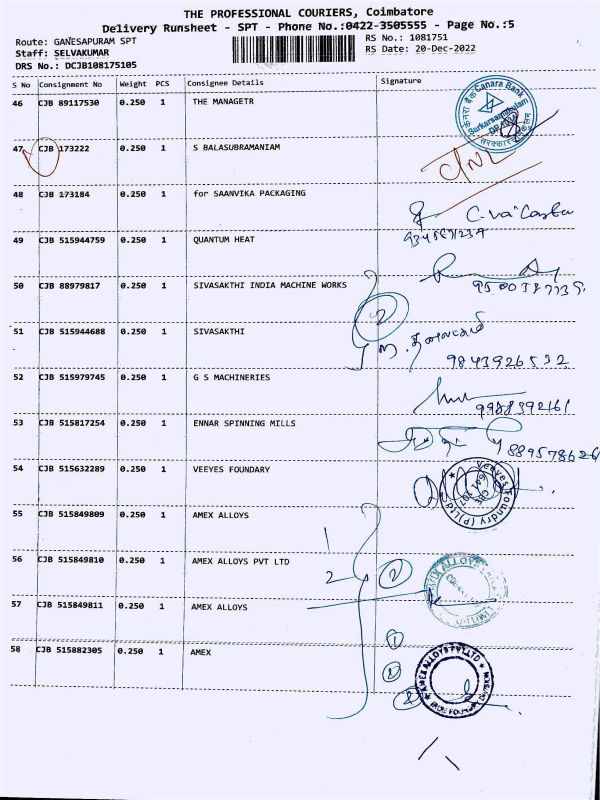 THE PROFESSIONAL COURIERS, Coimbatore
Delivery Runsheet - SPT - Phone No.:0422-3505555 - Page No.:5
Route: GANESAPURAM SPT
RS No.: 1081751
Staff: SELVAKUMAR
RS Date: 20-Dec-2022
DRS No.: DCJB108175105
S No Consignment No Weight PCS Consignee Details Signature
46 CJB 89117530 0.250 1 THE MANAGETR
Canara Bank
47 CJB 173222 0.250 1 S BALASUBRAMANIAM
48 CJB 173184 0.250 1 for SAANVIKA PACKAGING
49 CJB 515944759 0.250 1 QUANTUM HEAT
50 CJB 88979817 0.250 1 SIVASAKTHI INDIA MACHINE WORKS
2
51 CJB 515944688 0.250 1 SIVASAKTHI
9843926532
52 CJB 515979745 0.250 1 G S MACHINERIES
9988392161
53 CJB 515817254 0.250 1 ENNAR SPINNING MILLS
54 CJB 515632289 0.250 1 VEEYES FOUNDARY
Veeyes Foundry (P) Ltd
55 CJB 515849809 0.250 1 AMEX ALLOYS
1
56 CJB 515849810 0.250 1 AMEX ALLOYS PVT LTD
2
57 CJB 515849811 0.250 1 AMEX ALLOYS
58 CJB 515882305 0.250 1 AMEX
AMEX ALLOYS PVT LTD
IRON FOUNDRY DIVISION